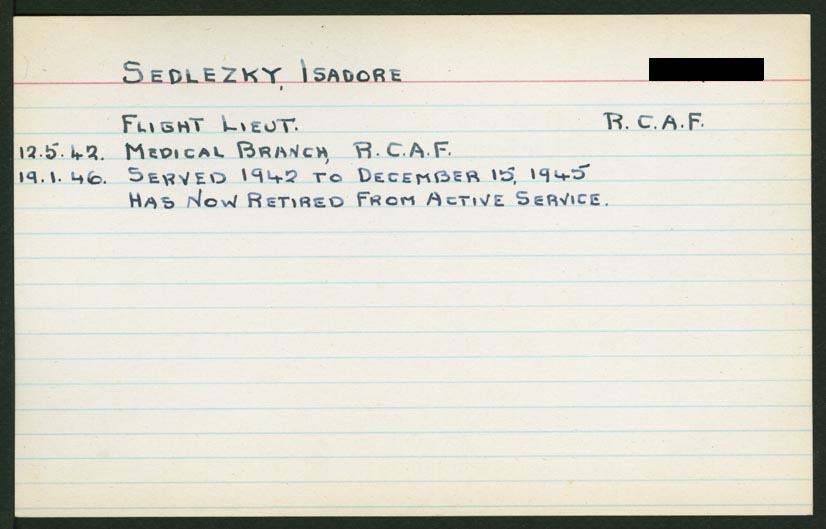 SEDLEZKY, ISADORE
FLIGHT LIEUT. R.C.A.F.
12.5.42. MEDICAL BRANCH, R.C.A.F.
19.1.46. SERVED 1942 TO DECEMBER 15, 1945
HAS NOW RETIRED FROM ACTIVE SERVICE.